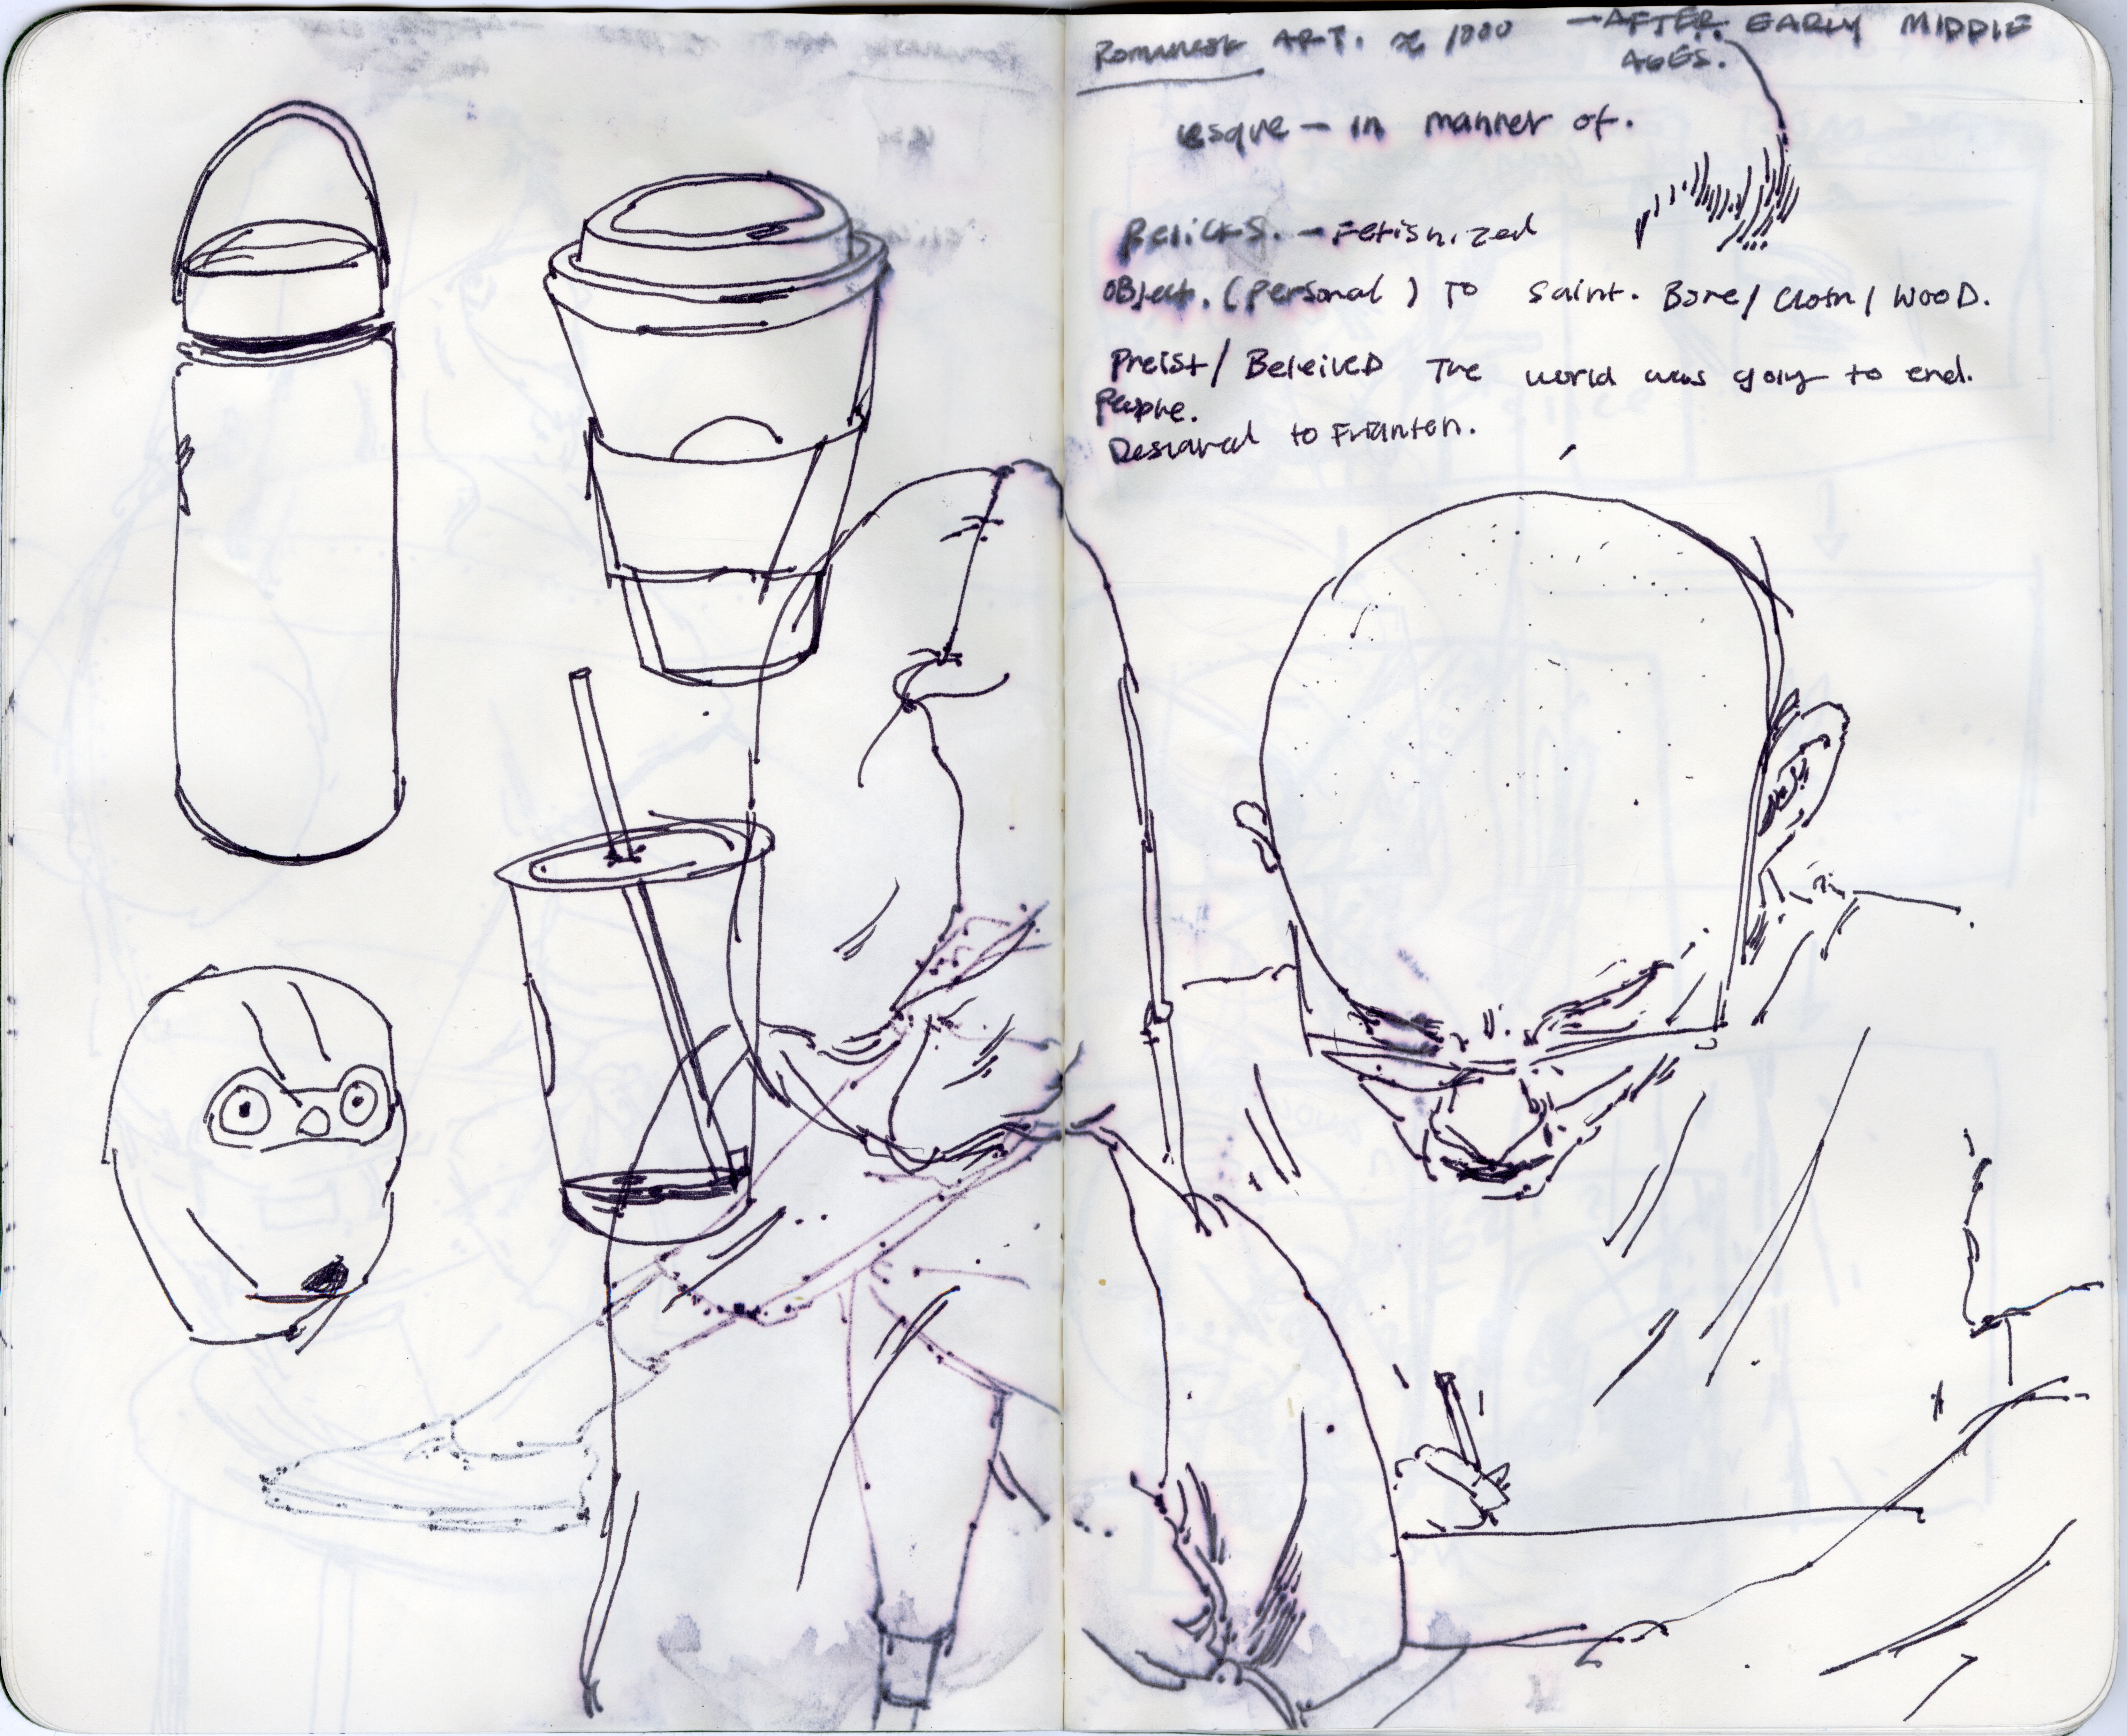 Romanesk ART. ≈ 1000 — AFTER EARLY MIDDLE
AGES.
esque — in manner of.
Relicks. — Fetishized
Object. (personal) To Saint. Bone/Cloth/WOOD.
Preist/ Beleived The world was going to end.
People.
to Frighten.